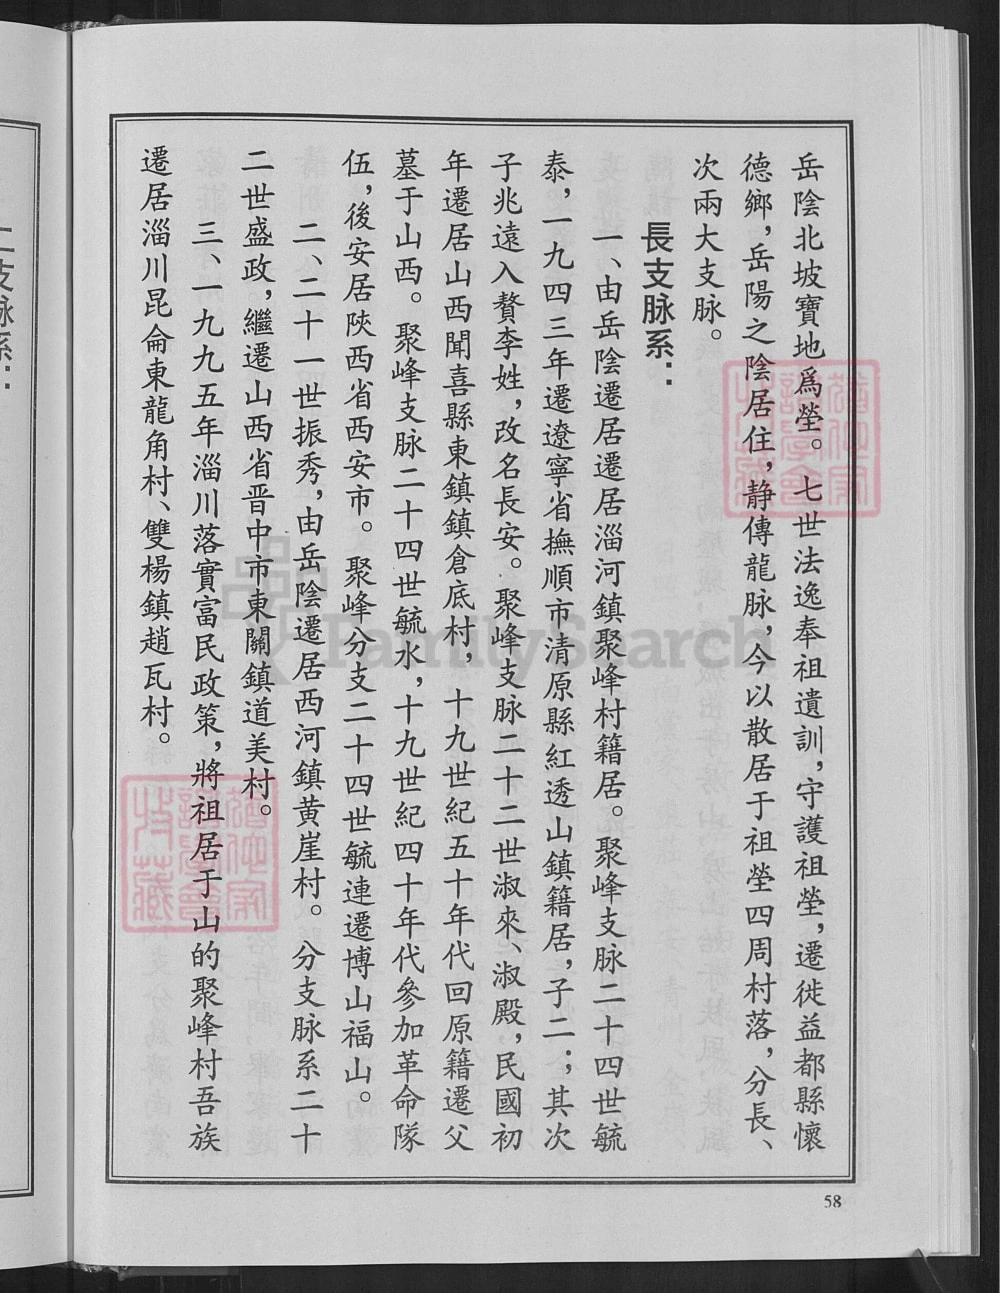 岳陰北坡寶地爲塋。七世法逸奉祖遺訓，守護祖塋，遷徙益都縣懷
德鄉，岳陽之陰居住，静傳龍脉，今以散居于祖塋四周村落，分長、
次兩大支脉。
長支脉系：
一、由岳陰遷居遷居淄河鎮聚峰村籍居。聚峰支脉二十四世毓
泰，一九四三年遷遼寧省撫順市清原縣紅透山鎮籍居，子二；其次
子兆遠入贅李姓，改名長安。聚峰支脉二十二世淑來、淑殿，民國初
年遷居山西聞喜縣東鎮鎮倉底村，十九世紀五十年代回原籍遷父
墓于山西。聚峰支脉二十四世毓水，十九世紀四十年代參加革命隊
伍，後安居陝西省西安市。聚峰分支二十四世毓連遷博山福山。
二、二十一世振秀，由岳陰遷居西河鎮黄崖村。分支脉系二十
二世盛政，繼遷山西省晋中市東關鎮道美村。
三、一九九五年淄川落實富民政策，將祖居于山的聚峰村吾族
遷居淄川昆侖東龍角村、雙楊鎮趙瓦村。
58
二支脉系：
FamilySearch